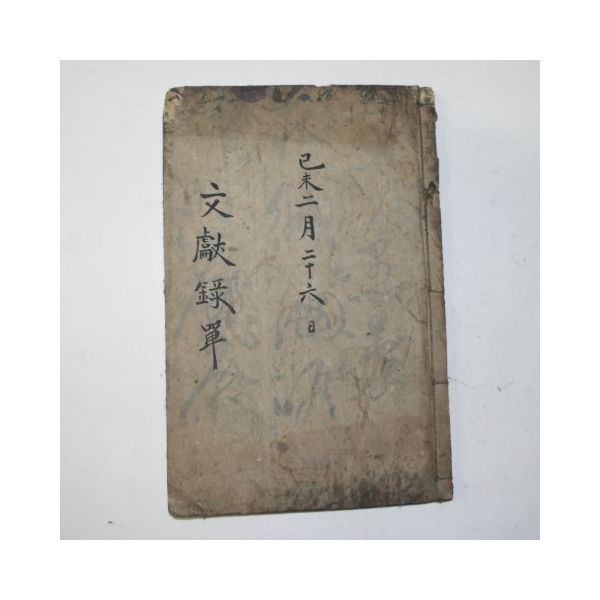 己未二月二十六日
文獻錄單